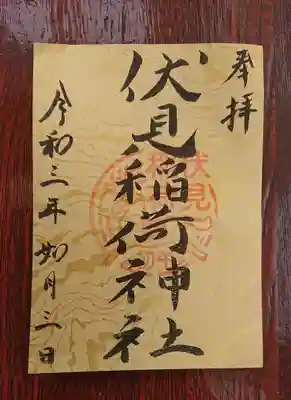 奉拝
伏見稲荷神社
令和三年 如月三日